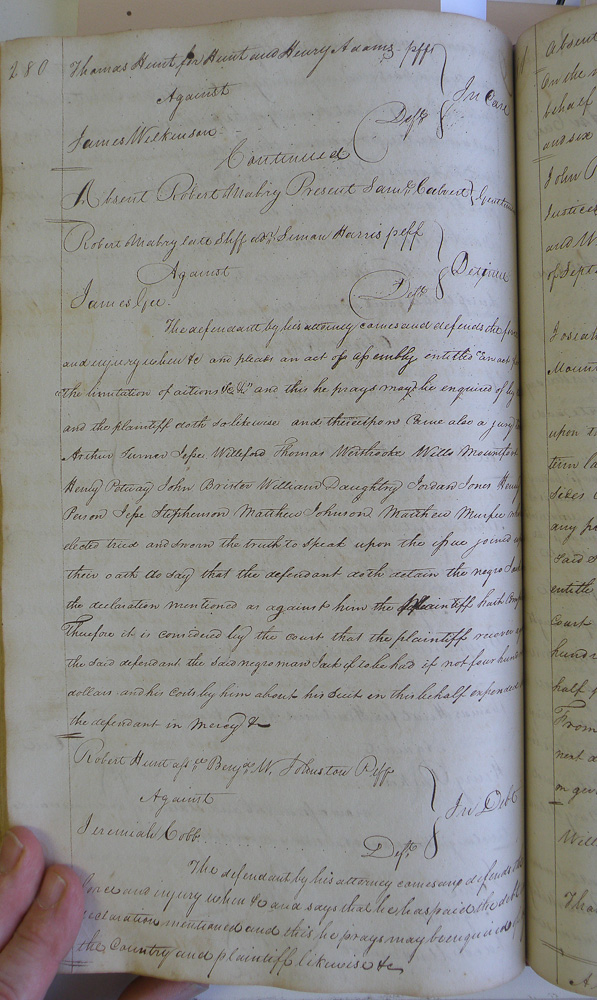 280
Thomas Hunt for Hunt and Henry Adams plffs
Against
In Case
James Wilkinson Deft
Continued
Absent Robert Mabry Present Saml Calvert Gentlemen
Robert Mabry late Shff Simon Harris plff
Against
Detinue
James Gee Deft
The defendant by his attorney comes and defends the force
and injury when &c and pleads an act of assembly entitled "An act for
"the limitation of actions &c &c" and this he prays may be enquired of by
and the plaintiff doth so likewise and thereupon Came also a jury
Arthur Turner Jesse Williford Thomas Westbrooke Wills Mountfort
Henry Potway John Brister William Daughtry Jordan Jones Henry
Person Jesse Stephenson Matthew Johnson Matthew Murfee
elected tried and sworn the truth to speak upon the issue joined
their oath do say that the defendant doth detain the negro Jack
the declaration mentioned as against him the plaintiff hath
Therefore it is considered by the court that the plaintiff recover
the said defendant the said negro man Jack if to be had if not four hundred
dollars and his Costs by him about his Suit in this behalf expended
the defendant in Mercy &c
Robert Hunt assee Benja W. Johnston Plff
Against
In Debt
Jeremiah Cobb Deft
The defendant by his attorney comes and defends the
force and injury when &c and says that he has paid the debt
declaration mentioned and this he prays may be enquired of
the Country and plaintiff likewise &c
Absent
On the
behalf
and six
John
Justices
and
of Sept
Josiah
upon
term
any
said
entitle
Court
half
From
next